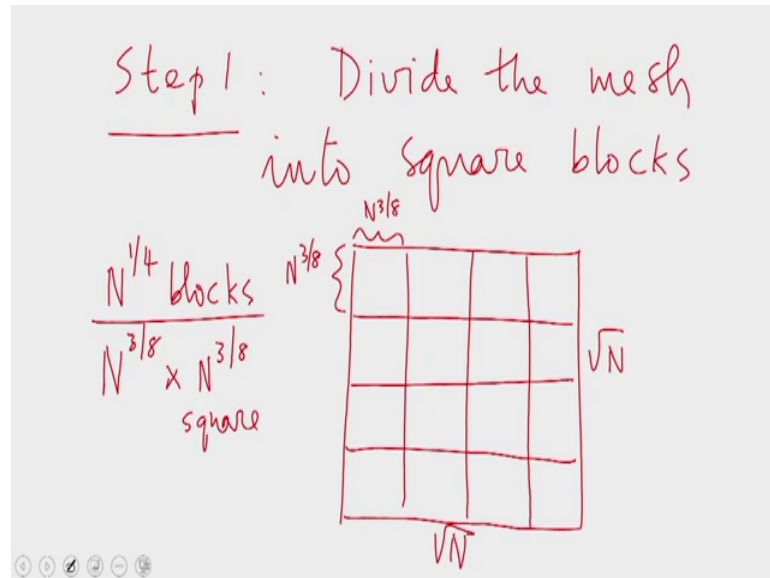 Step 1: Divide the mesh
into square blocks
N^3/8
N^3/8
N^1/4 blocks
N^3/8 x N^3/8
square
√N
√N